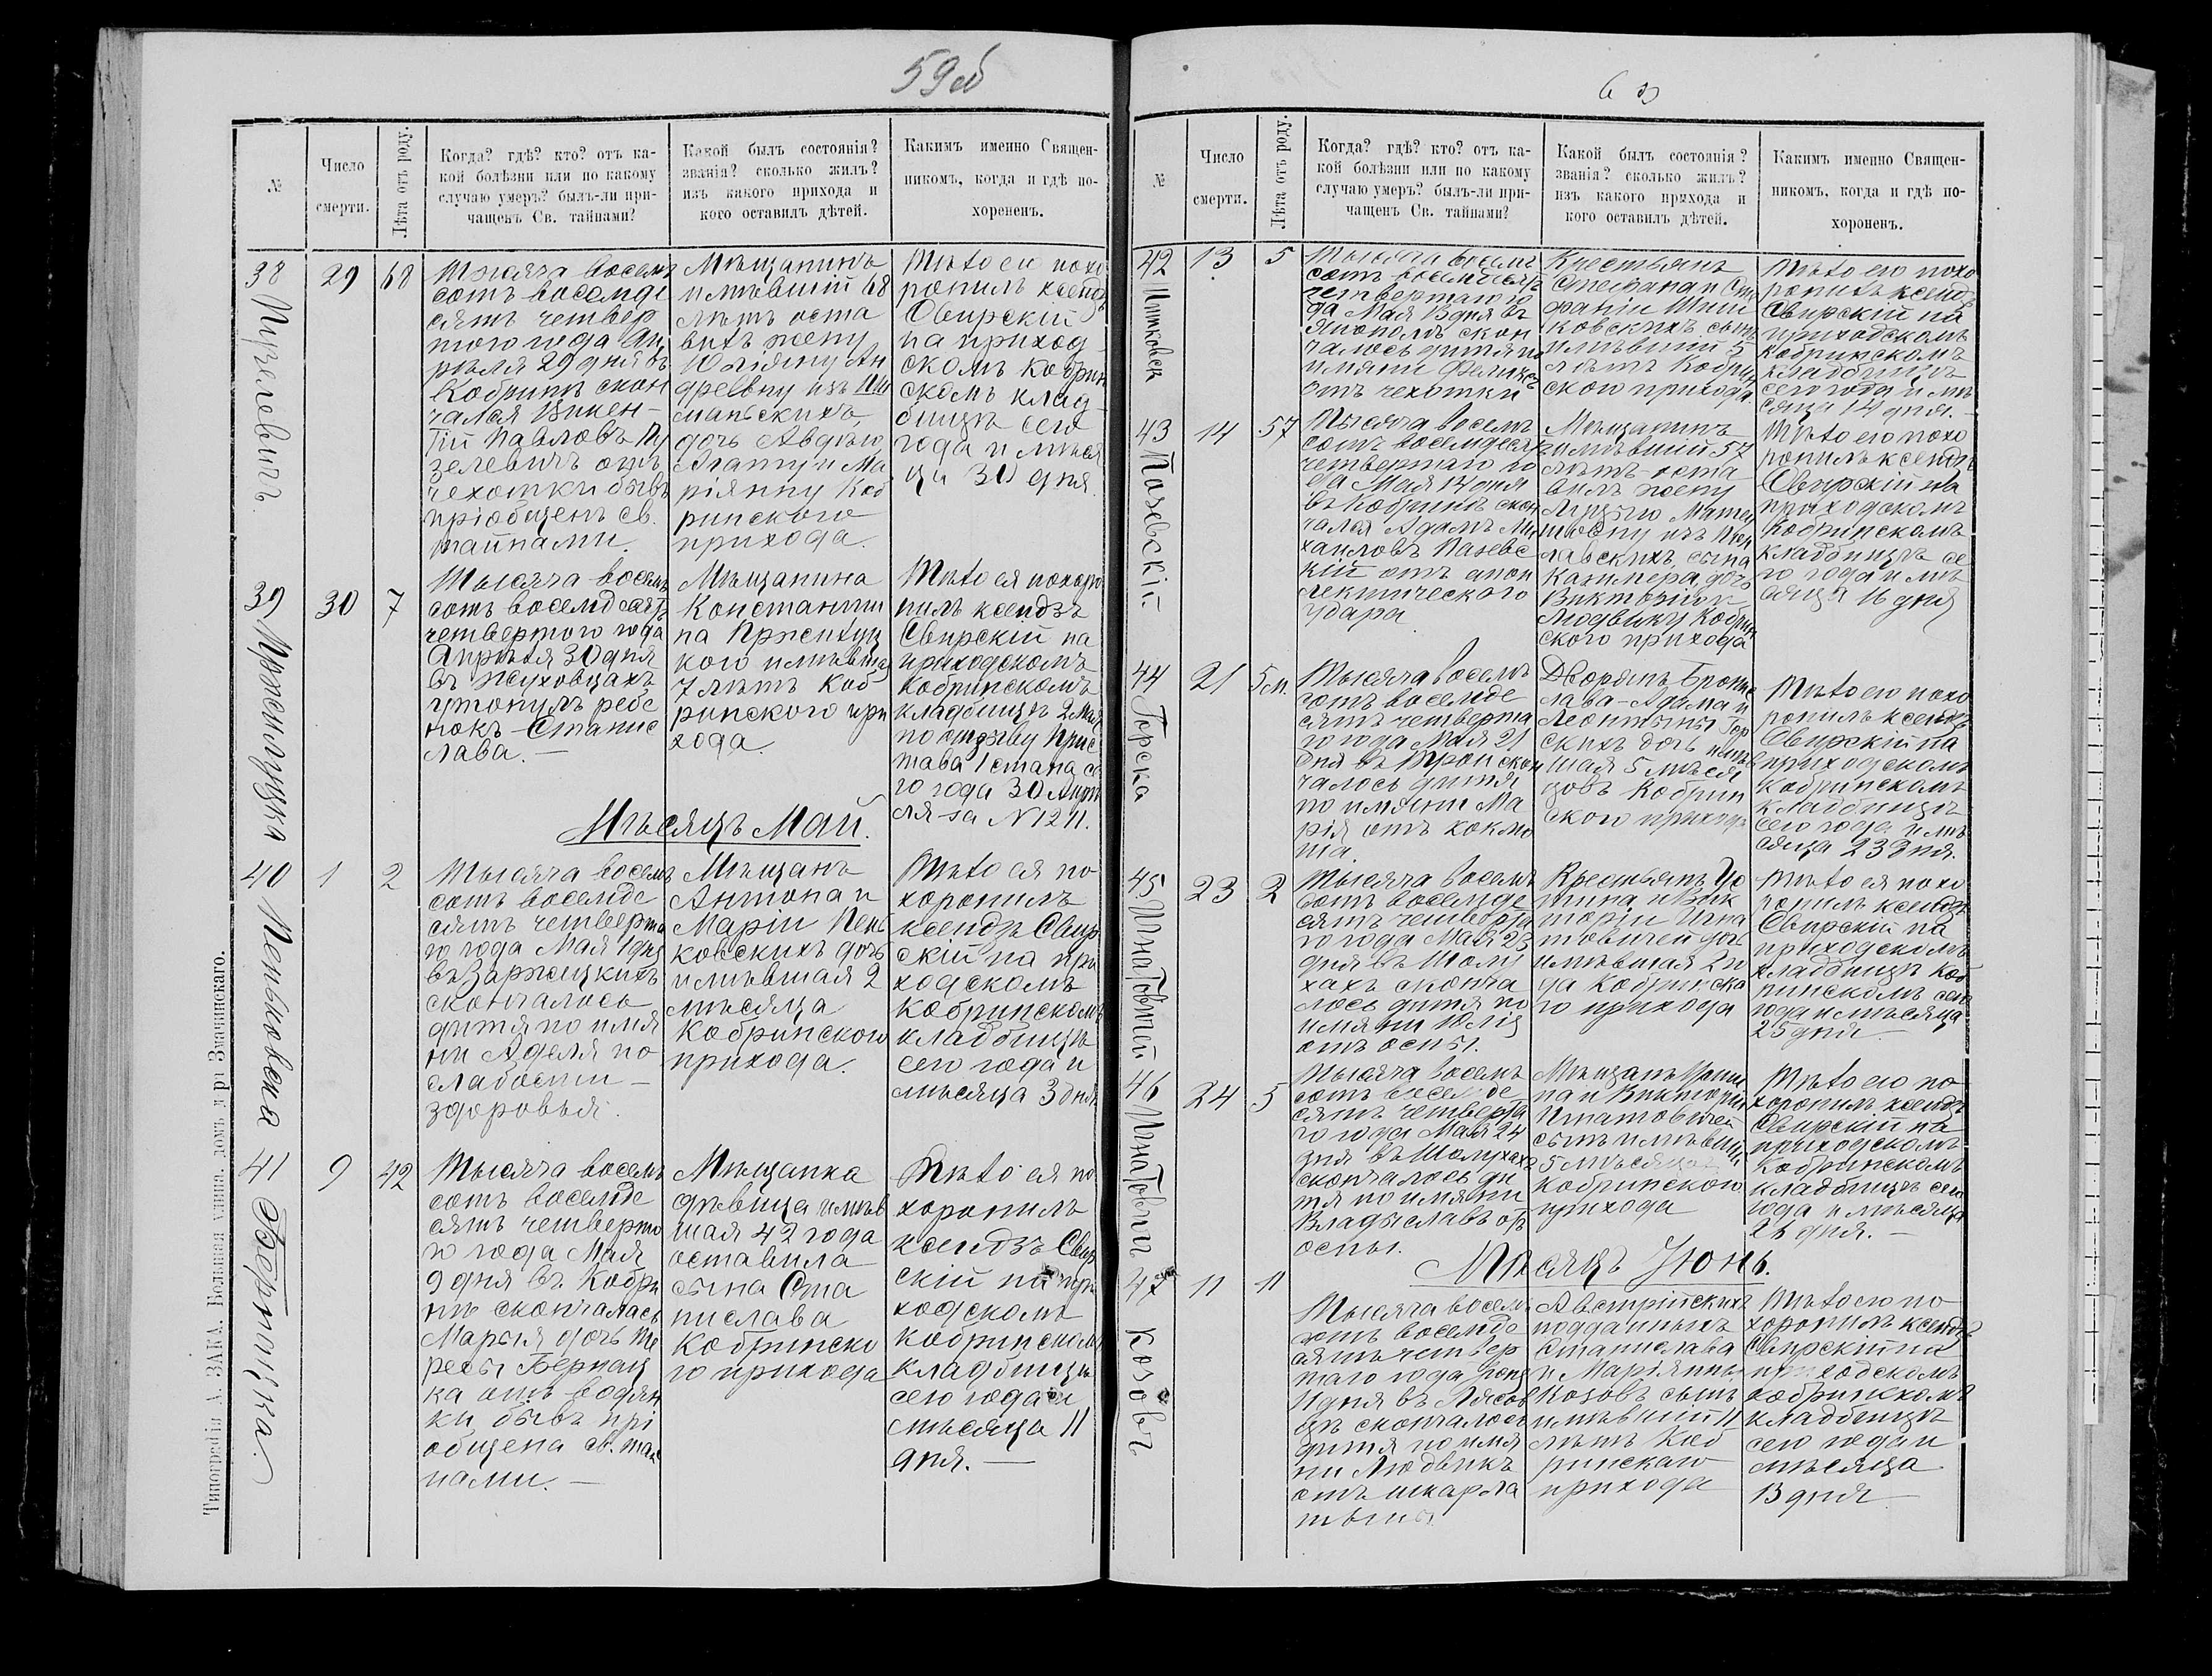 59об
№
Число
смерти.
Лѣта отъ роду.
Когда? гдѣ? кто? отъ ка-
кой болѣзни или по какому
случаю умеръ? былъ-ли при-
чащенъ Св. тайнами?
Какой былъ состоянія?
званія? сколько жилъ?
изъ какого прихода и
кого оставилъ дѣтей.
Какимъ именно Священ-
никомъ, когда и гдѣ по-
хороненъ.
38
Пузелевичъ.
29
68
Тысяча восемь
сотъ восемде
сятъ четвер
того года Ап
рѣля 29 дня въ
Кобринѣ скон
чался Викен-
тій Павловъ Пу
зелевичъ отъ
чехотки бывъ
пріобщенъ св.
тайнами.
Мѣщанинъ
имѣвшій 68
лѣтъ оста
вилъ жену
Юліянну Ан
древну изъ
дочь Авдѣю
Агату и Ма
ріянну Коб
ринского
прихода.
Тѣло его похо
ронилъ ксендзъ
Свирскій
на приход
скомъ Кобрин
скомъ клад
бищѣ сего
года и мѣся
ца 30 дня.
39
30
7
Тысяча восемь
сотъ восемдесятъ
четвертого года
Апрѣля 30 дня
въ Псуховцахъ
утонулъ ребе
нокъ Станис
лава. —
Мѣщанина
Константи
на
кого имѣвша
7 лѣтъ Коб
ринского при
хода.
Тѣло ея похоро
нилъ ксендзъ
Свирскій на
приходскомъ
Кобринскомъ
кладбищѣ 2 Мая
по отзыву Прис
тава 1 стана се
го года 30 Апрѣ
ля за N 1211.
Мѣсяцъ Май.
40
Пеньковска
1
2
Тысяча восемь
сотъ восемде
сятъ четверта
го года Мая 1 дня
въ Заржецкихъ
скончалось
дитя по имя
ни Аделя по
слабости
здоровья.
Мѣщанъ
Антона и
Маріи Пень
ковскихъ дочь
имѣвшая 2
мѣсяца
Кобринского
прихода.
Тѣло ея по
хоронилъ
ксендзъ Свир
скій на при
ходскомъ
Кобринскомъ
кладбищѣ
сего года и
мѣсяца 3 дня
41
Бернацка.
9
42
Тысяча восемь
сотъ восемде
сятъ четверто
го года Мая
9 дня въ Кобри
нѣ скончалась
Марыя дочь Те
ресы Бернац
ка отъ водян
ки бывъ прі
общена св. тай
нами. —
Мѣщанка
дѣвица имѣв
шая 42 года
оставила
сына Ста
нислава
Кобринско
го прихода
Тѣло ея по
хоронилъ
ксендзъ Свир
скій на при
ходскомъ
Кобринскомъ
кладбищѣ
сего года и
мѣсяца 11
дня. —
Типографія А. ЗАКА. Вольная улица. домъ
№
Число
смерти.
Лѣта отъ роду.
Когда? гдѣ? кто? отъ ка-
кой болѣзни или по какому
случаю умеръ? былъ-ли при-
чащенъ Св. тайнами?
Какой былъ состоянія?
званія? сколько жилъ?
изъ какого прихода и
кого оставилъ дѣтей.
Какимъ именно Священ-
никомъ, когда и гдѣ по-
хороненъ.
42
13
5
Тысяча восемь
сотъ восемдесятъ
четвертаго го
да Мая 13 дня въ
скон
чалось дитя по
имяни Феликсъ
отъ чехотки
Крестьянъ
Стефана и Сте
фаніи Шиш
ковскихъ сынъ
имѣвшій 5
лѣтъ Кобрин
ского прихода.
Тѣло его похо
ронилъ ксендзъ
Свирскій на
приходскомъ
Кобринскомъ
кладбищѣ
сего года и мѣ
сяца 14 дня. —
43
Пазевскій.
14
57
Тысяча восемь
сотъ восемдесятъ
четвертаго го
да Мая 14 дня
въ Кобринѣ скон
чался Адамъ Ми
хаиловъ Пазевс
кій отъ апоп
лектического
удара.
Мѣщанинъ
имѣвшій 57
лѣтъ оста
вилъ жену
Луцію
изъ
лавскихъ, сына
Казимера, дочь
Викторію и
Людвику Кобрин
ского прихода
Тѣло его похо
ронилъ ксендзъ
Свирскій на
приходскомъ
Кобринскомъ
кладбищѣ се
го года и мѣ
сяца 16 дня
44
Горска
21
5 м.
Тысяча восемь
сотъ восемде
сятъ четверта
го года Мая 21
дня въ скон
чалось дитя
по имяни Ма
рія отъ коклю
ша.
Дворянъ Бронис
лава-Адама и
Леонтыны Гор
скихъ дочь имѣв
шая 5 мѣся
цовъ Кобрин
ского прихода
Тѣло его похо
ронилъ ксендзъ
Свирскій на
приходскомъ
Кобринскомъ
кладбищѣ
сего года и мѣ
сяца 23 дня.
45
Игнатовичей
23
2
Тысяча восемь
сотъ восемде
сятъ четверта
го года Мая 23
дня въ Шолу
хахъ сконча
лось дитя по
имяни Юлія
отъ оспы.
Крестьянъ Ус
тина и Вик
торіи Игна
товичей дочь
имѣвшая 2 го
да Кобринска
го прихода
Тѣло ея похо
ронилъ ксендзъ
Свирскій на
приходскомъ
кладбищѣ Коб
ринскомъ сего
года и мѣсяца
25 дня —
46
Игнатовичъ
24
5
Тысяча восемь
сотъ восемде
сятъ четверта
го года Мая 24
дня въ Шолухахъ
скончалось ди
тя по имяни
Владыславъ отъ
оспы.
Мѣщанъ
и Викторіи
Игнатовичей
сынъ имѣвшій
5 мѣсяцовъ
Кобринского
прихода
Тѣло его по
хоронилъ ксендзъ
Свирскій на
приходскомъ
Кобринскомъ
кладбищѣ сего
года и мѣсяца
26 дня. —
Мѣсяцъ Іюнь.
47
Козовъ
11
11
Тысяча восемь
сотъ восемде
сятъ четвер
таго года Іюня
11 дня въ
скончалось
дитя по имя
ни Людвикъ
отъ шкарла
тыны
Австрійскихъ
подданныхъ
Станислава
и Маріянны
Козовъ сынъ
имѣвшій 11
лѣтъ Коб
ринскаго
прихода
Тѣло его по
хоронилъ ксендзъ
Свирскій на
приходскомъ
кобринскомъ
кладбищѣ
сего года и
мѣсяца
13 дня